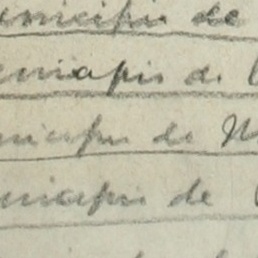 unicipio de
unicipio de
unicipio de M
unicipio de